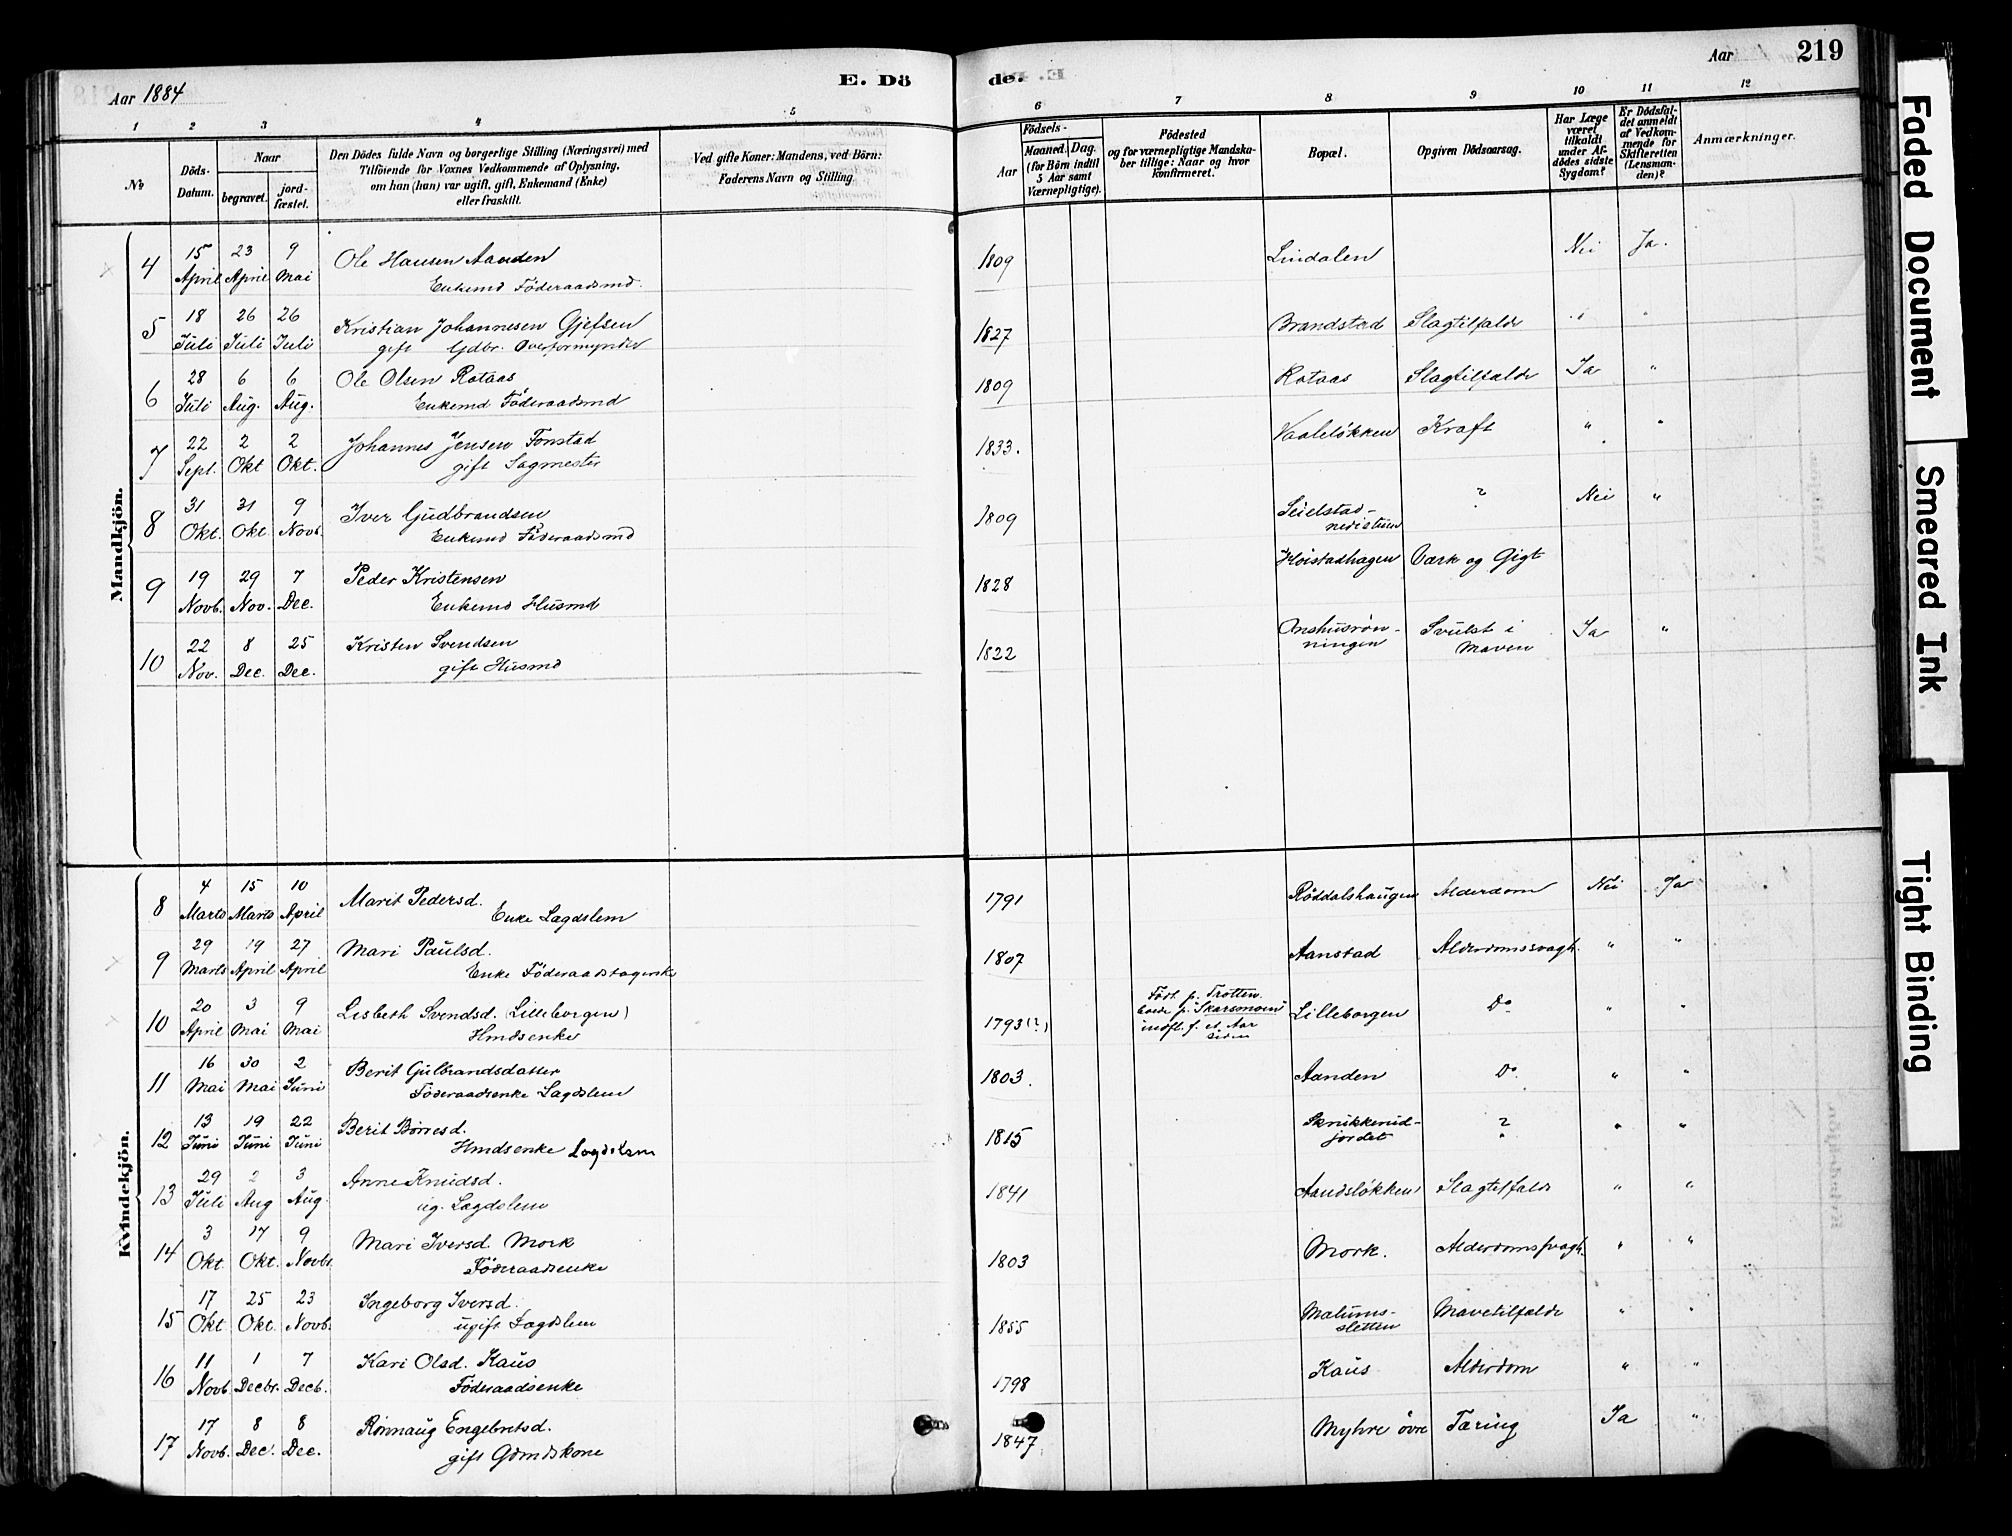 Aar 1884
E. Dö
de.
Aar
219
1 2 3 4 5 6 7 8 9 10 11 12
No
Döds-Datum.
Naar
begravet.
jord-fæstet.
Den Dödes fulde Navn og borgerlige Stilling (Næringsvei) med
Tilföiende for Voxnes Vedkommende af Oplysning,
om han (hun) var ugift, gift, Enkemand (Enke)
eller fraskilt.
Ved gifte Koner: Mandens, ved Börn:
Faderens Navn og Stilling
Födsels-
Aar
Maaned. Dag.
(for Börn indtil
5 Aar samt
Værnepligtige).
Födested
og for værnepligtige Mandska-
ber tillige: Naar og hvor
konfirmeret.
Bopæl.
Opgiven Dödsaarsag.
Har Læge
været
tilkaldt
under Af-
dödes sidste
Sygdom?
Er Dödsfal-
det anmeldt
af Vedkom-
mende for
Skifteretten
(Lensman-
den)?
Anmærkninger.
Mandkjön.
4 15 April 23 April 9 Mai Ole Hansen Aanden 1809 Lindalen Nei Ja.
Enkemd Föderaadsmd.
5 18 Juli 26 Juli 26 Juli Kristian Johannesen Gjefsen 1827 Brandstad Slagtilfælde " "
gift Gdbr. Overformynder
6 28 Juli 6 Aug. 6 Aug. Ole Olsen Rotaas 1809 Rotaas Slagtilfælde Ja "
Enkemd Föderaadsmd
7 22 Sept. 2 Okt 2 Okt. Johannes Jensen Fonstad 1833. Vaaleløkken Kræft " "
gift Sagmester
8 31 Okt. 31 Okt 9 Novb. Iver Gudbrandsen 1809 Seielstad- ? Nei "
Enkemd Föderaadsmd nedistuen
9 19 Novb. 29 Nov. 7 Dec. Peder Kristensen 1828 Høistadhagen Værk og Gigt
Enkemd Husmd
10 22 Nov. 8 Dec. 25 Dec. Kristen Svendsen 1822 Onshusrøn- Svulst i Ja "
gift Husmd ningen Maven
Kvindekjön.
8 4 Marts 15 Marts 10 April Marit Pedersd. 1791 Røddalshaugen Alderdom Nei Ja
Enke Lægdslem
9 29 Marts 19 April 27 April Mari Paulsd. 1807 Aanstad Alderdomssvagh. " "
Enke Föderaadstagerske
10 20 April 3 Mai 9 Mai Lisbeth Svendsd. (Lilleborgen) 1793(?) Lilleborgen Do " "
Hmdsenke
Født p. Trotten.
boede p. Skarsmoen
indfl. f. et Aar
siden
11 16 Mai 30 Mai 2 Juni Berit Gulbrandsdatter 1803. Aanden Do " "
Föderaadsenke Lægdslem
12 13 Juni 19 Juni 22 Juni Berit Børresd. 1815 Skrukkerud- ? " "
Hmdsenke Lægdslem jordet
13 29 Juli 2 Aug 3 Aug. Anne Knudsd. 1841 Aandsløkken Slagtilfælde " "
ug. Lægdslem
14 3 Okt. 17 Okt. 9 Novbr. Mari Iversd. Mork 1803 Mork. Alderdomssvagh. " "
Föderaadsenke
15 17 Okt 25 Okt. 23 Novb. Ingeborg Iversd. 1855 Malums- Mavetilfælde " "
ugift Lægdslem sletten
16 11 Novb. 1 Decbr. 7 Decb. Kari Olsd. Kaus 1798 Kaus Alderdom " "
Föderaadsenke
17 17 Novb. 8 Dec. 8 Dec. Rønnaug Engebretsd. 1847 Myhre øvre Tæring Ja "
gift Gdmdskone
Faded Document
Smeared Ink
Tight Binding